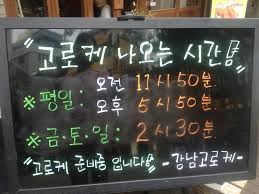 "고로케 나오는 시간"
※평일: 오전 11시 50분
오후 5시 50분
※금·토·일: 2시 30분
"고로케 준비중 입니다" -강남고로케-